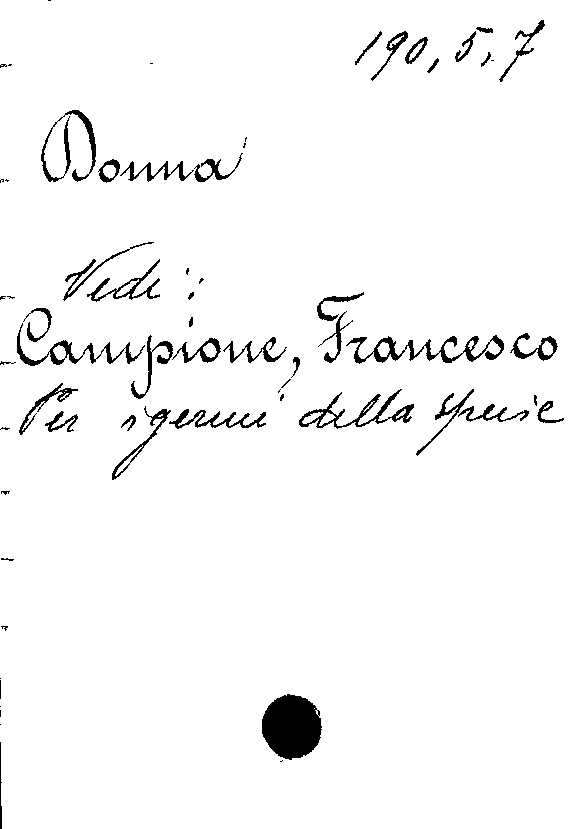 190,5,7
Donna
Vedi:
Campione, Francesco
Per i germi della specie